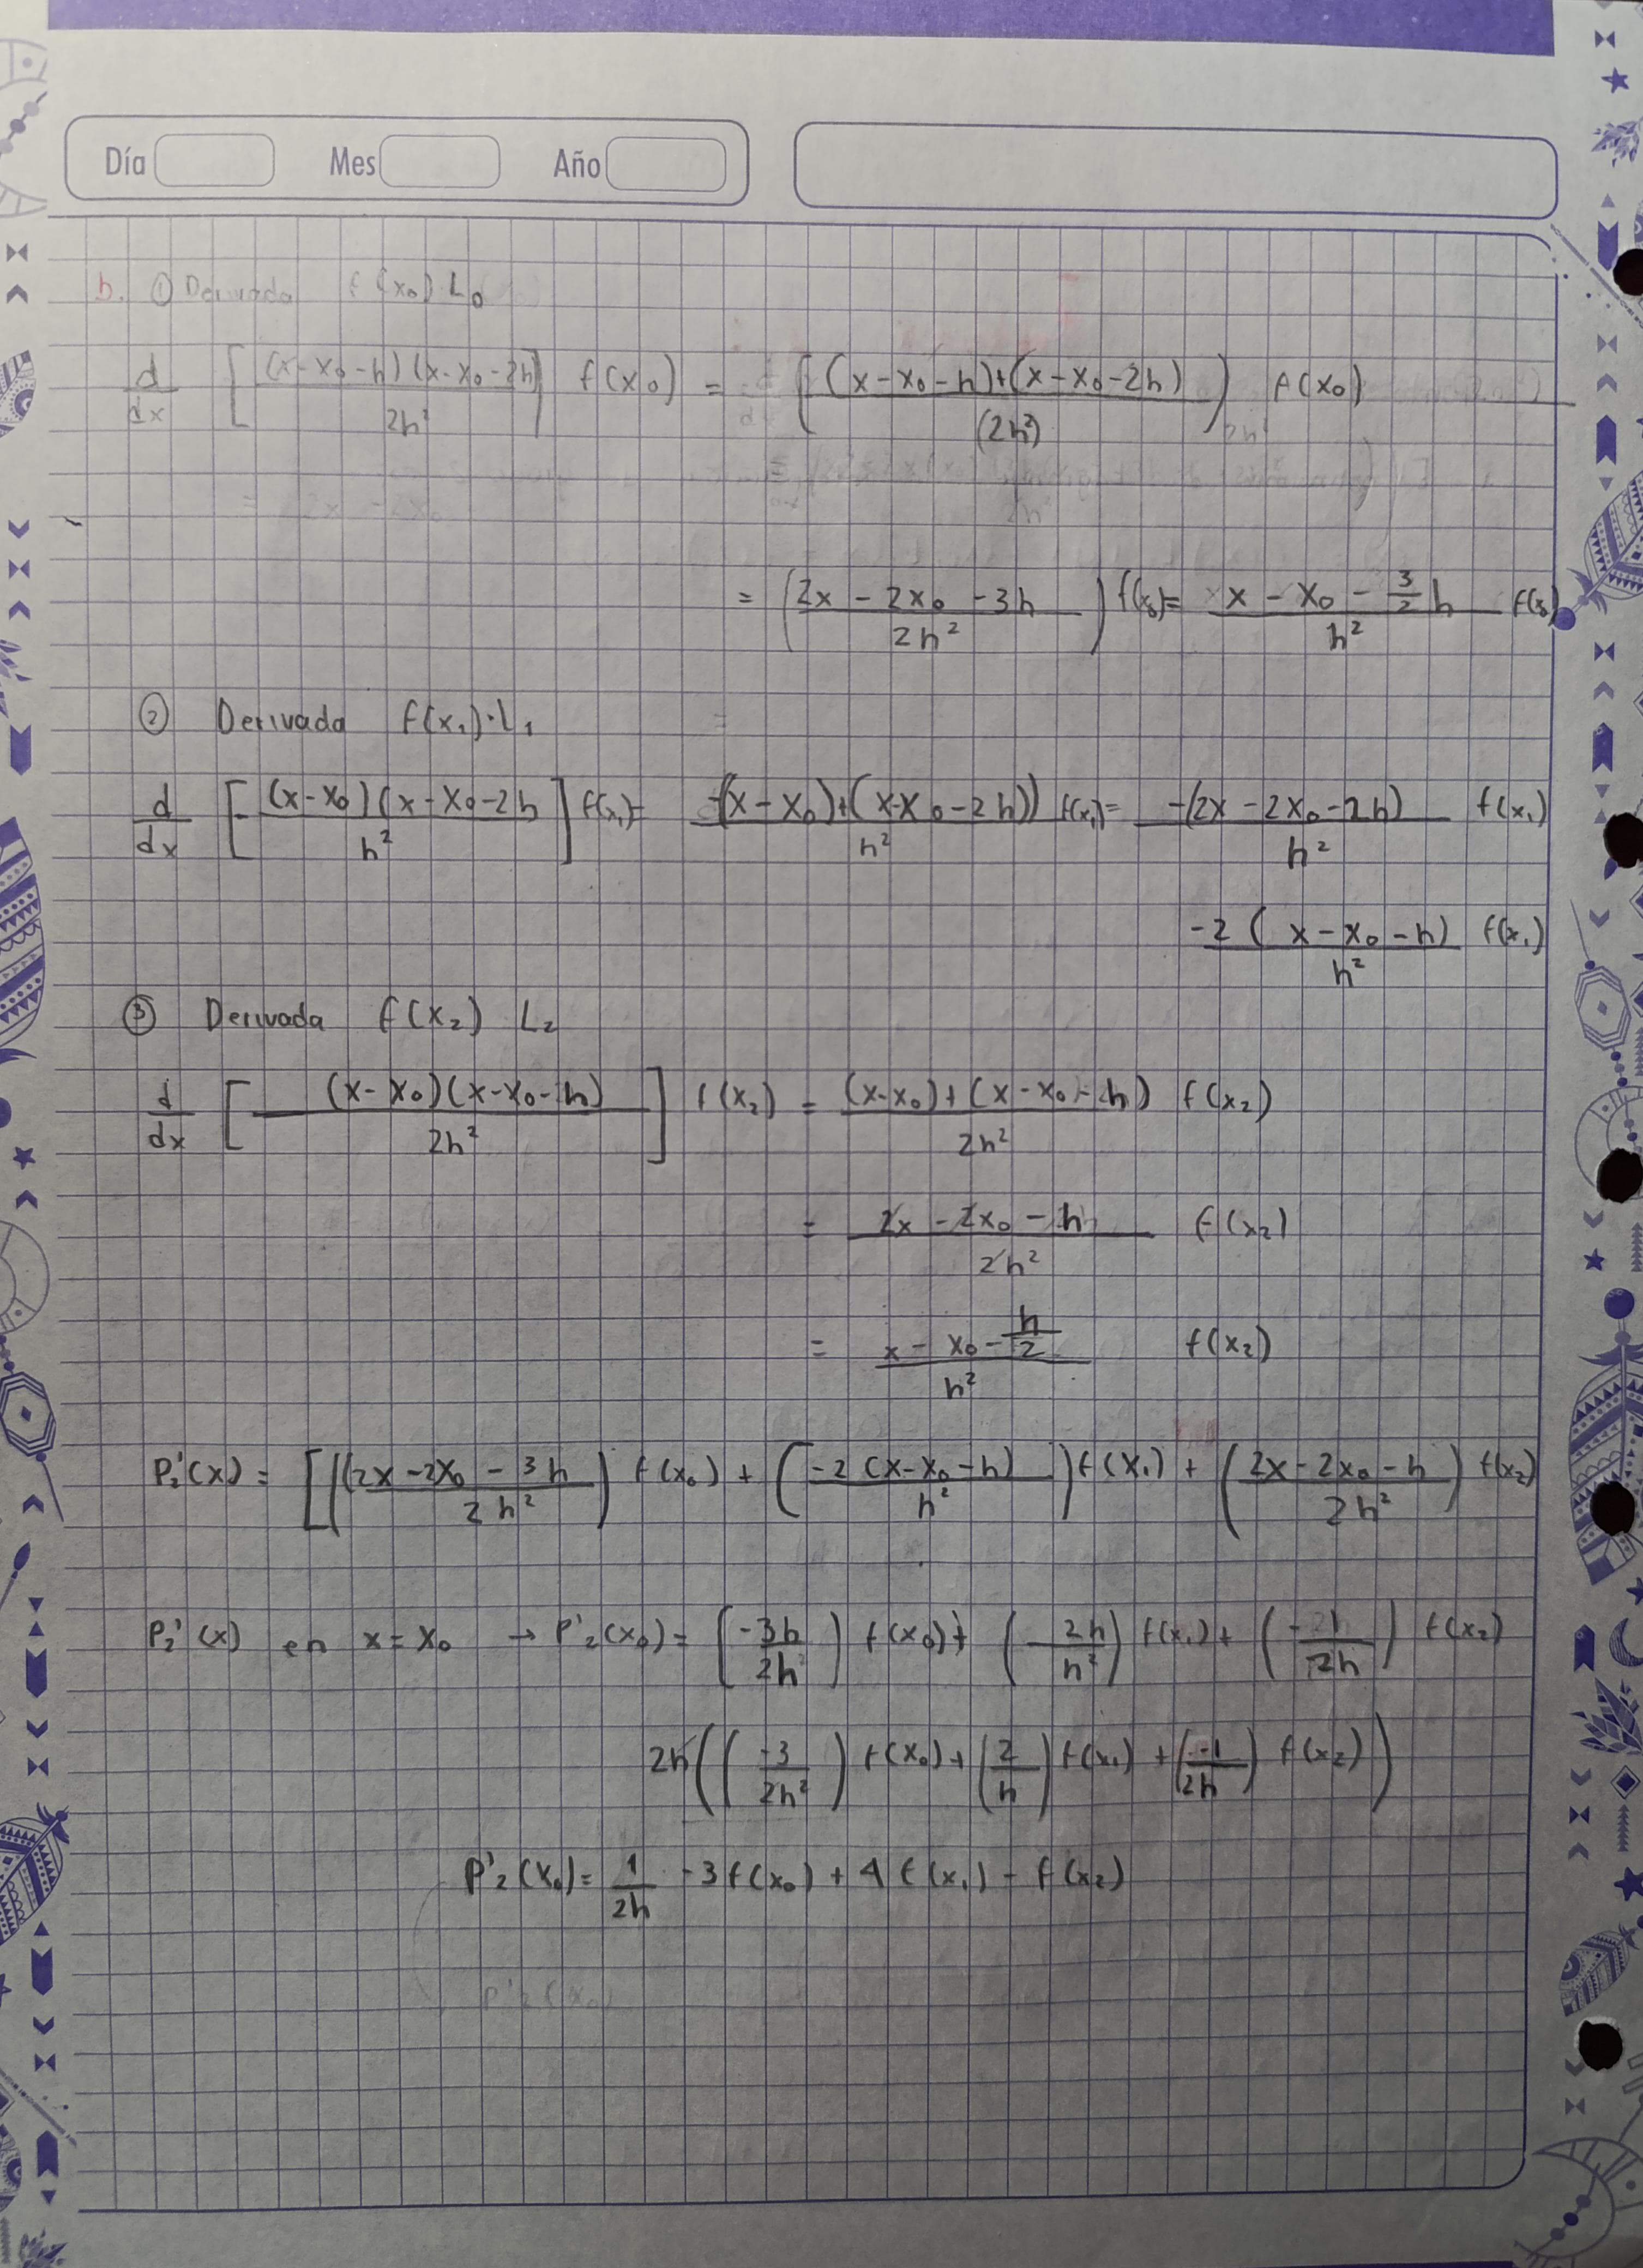 Día Mes Año
b. ① Derivada f(x₀) L₀
d/dx [(x-x₀-h)(x-x₀-2h)/2h²] f(x₀) = ((x-x₀-h)+(x-x₀-2h)/(2h²)) f(x₀)
= (2x-2x₀-3h/2h²) f(x₀) = x-x₀-3/2h/h² f(x₀)
② Derivada f(x₁)·L₁
d/dx [-(x-x₀)(x-x₀-2h/h²] f(x₁) = -(x-x₀)+(x-x₀-2h))/h² f(x₁) = -(2x-2x₀-2h)/h² f(x₁)
-2(x-x₀-h)/h² f(x₁)
③ Derivada f(x₂) L₂
d/dx [(x-x₀)(x-x₀-h)/2h²] f(x₂) = (x-x₀)+(x-x₀-h)/2h² f(x₂)
= 2x-2x₀-h/2h² f(x₂)
= x-x₀-h/2/h² f(x₂)
P₂'(x) = [((2x-2x₀-3h/2h²) f(x₀) + (-2(x-x₀-h)/h²) f(x₁) + (2x-2x₀-h/2h²) f(x₂)
P₂'(x) en x=x₀ → P'₂(x₀) = (-3h/2h²) f(x₀) + (-2h/h²) f(x₁) + (-1/2h) f(x₂)
2h((-3/2h²) f(x₀) + (2/h) f(x₁) + (-1/2h) f(x₂))
P'₂(x₀) = 1/2h -3f(x₀) + 4f(x₁) - f(x₂)
P'₂(x₀)